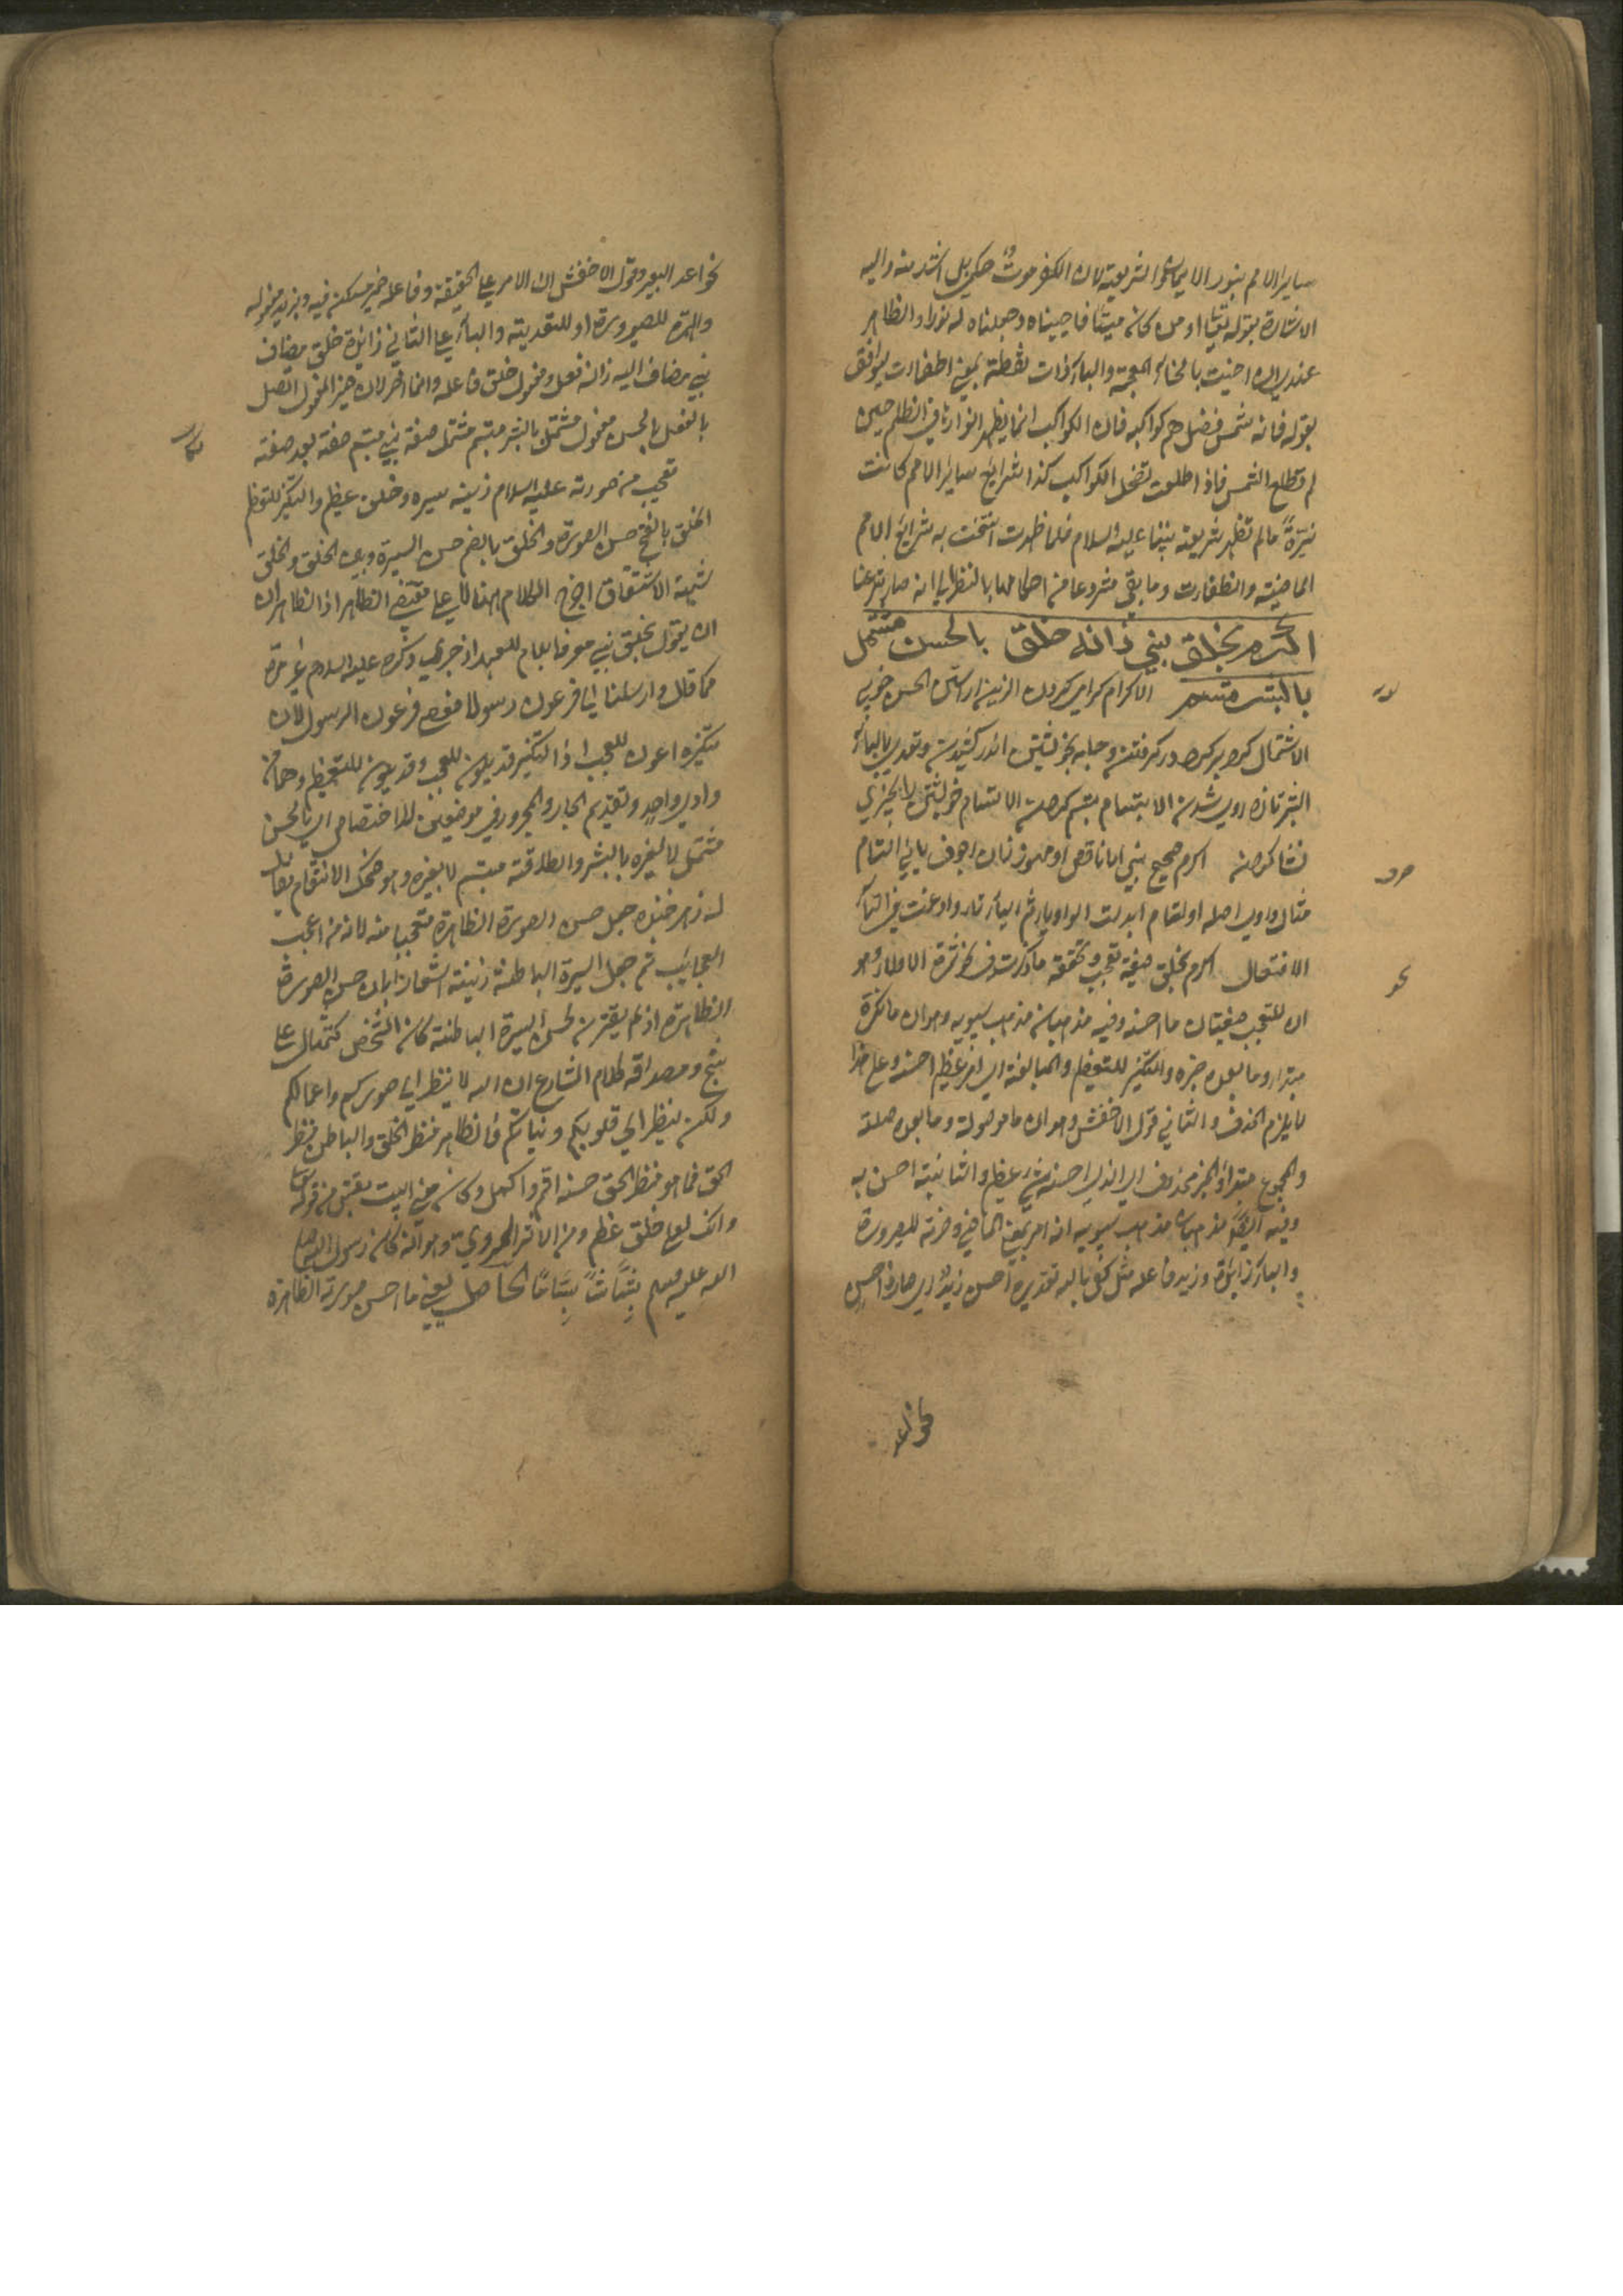 ساير الامم بنور الايمان والشريعة لان الكفر موت حكمي بل اشد منه واليه
الاشارة بقوله تعالى او من كان ميتا فاحييناه وجعلنا له نورا والظاهر
عندي ان اخبت بالخاء المعجمة والباء ذات نقطة بمعنى اطفأت ليوافق
بقوله فانه شمس فضل هم كواكبها فان الكواكب انما يظهر انوارها في الظلم حين
لم تطلع الشمس فاذا طلعت تضمحل الكواكب كذا شرايع ساير الامم كانت
نيرة ما لم تظهر شريعة نبينا عليه السلام فلما ظهرت انتسخت به شرايع الامم
الماضية وانطفأت وما بقي مشروعا من احكامها بالنظر الى انه صار شرعنا
اكرم بخلق نبي زانه خلق بالحسن مشتمل
بالبشر متسم الاكرام كرامي كردن الزين اراستن الحسن خوبي
الاشتمال كرد بركرد در گرفتن وجامه بخويشتن اندر كشيدن وتعديه بالباء
البشر تازه روي شدن الابتسام تبسم كردن الاتسام خويشتن را بچيزي
نشان كردن اكرم صحيح نبي اما ناقص او مهموز زان اجوف يائي اتسام
مثال واوي اصله اوتسام ابدلت الواو ياء ثم الياء تاء وادغمت في التاء
الافتعال اكرم بخلق صيغة تعجب وتحقيقه ما ذكرت
ان للتعجب صيغتان ما احسنه وفيه مذهبان مذهب سيبويه وهو ان ما نكرة
مبتدأ وما بعده خبره والتنكير للتعظيم والمبالغة اي امر عظيم احسنه وعلى هذا
لا يلزم الحذف والثاني قول الاخفش وهو ان ما موصولة وما بعده صلة
والمجموع مبتدأ والخبر محذوف اي الذي احسنه شيء عظيم والثانية احسن به
وفيه ايضا مذهبان مذهب سيبويه انه امر بمعنى الماضي وهمزته للصيرورة
والباء زائدة وزيد فاعله مثل كفى بالله تقديره احسن زيد اي صار ذا حسن
كواعد
لغة
صرف
نحو
كواعد البعير وقول الاخفش ان الامر على الحقيقة وفاعله ضمير مستكن فيه وبزيد مفعوله
والهمزة للصيرورة او للتعدية والباء على الثاني زائدة خلق مضاف
نبي مضاف اليه زانه فعل ومفعول خلق فاعله وانما اخر لان ضمير المفعول اتصل
بالفعل بالحسن مفعول مشتمل بالبشر متسم مشتمل صفة نبي متسم صفة بعد صفة
تعجب من صورته عليه السلام زينه سيره وخلق عظيم والتنكير للتعظيم
الخلق بالفتح حسن الصورة والخلق بالضم حسن السيرة وبين الخلق والخلق
شبهة الاشتقاق اخرج الكلام هذا لا على مقتضى الظاهر اذ الظاهر ان
ان يقول بخلق نبي معرفا بلام للعهد اذ جرى ذكره عليه السلام غير مرة
كما قال وارسلنا الى فرعون رسولا فعصى فرعون الرسول لان
تنكيره اعون للعجب اذ التنكير قد يكون للعجب وقد يكون للتعظيم وهما من
وادي واحد وتقديم الجار والمجرور في موضعين للاختصاص اي بالحسن
مشتمل لا بغيره بالبشر والطلاقة متسم لا بغيره وهو ضحك الانتقام
جعل حسن الصورة الظاهرة متعجبا منه لانه من اعجب
العجايب ثم جعل السيرة الباطنة زينته اشعارا بان حسن الصورة
الظاهرة اذ لم يقترن بحسن السيرة الباطنة كان الشخص كتمثال على
ومصداقه كلام الشارع ان الله لا ينظر الى صوركم واعمالكم
ولكن ينظر الى قلوبكم ونياتكم فالظاهر منظر الخلق والباطن منظر
الحق فما هو منظر الحق حسنه اقوم واكمل وكان معنى البيت مقتبس من قوله تعالى
وانك لعلى خلق عظيم ومن الاثر المروي وهو انه كان رسول الله صلى
الله عليه وسلم بشاشا بساما الحاصل يعني ما احسن صورته الظاهرة